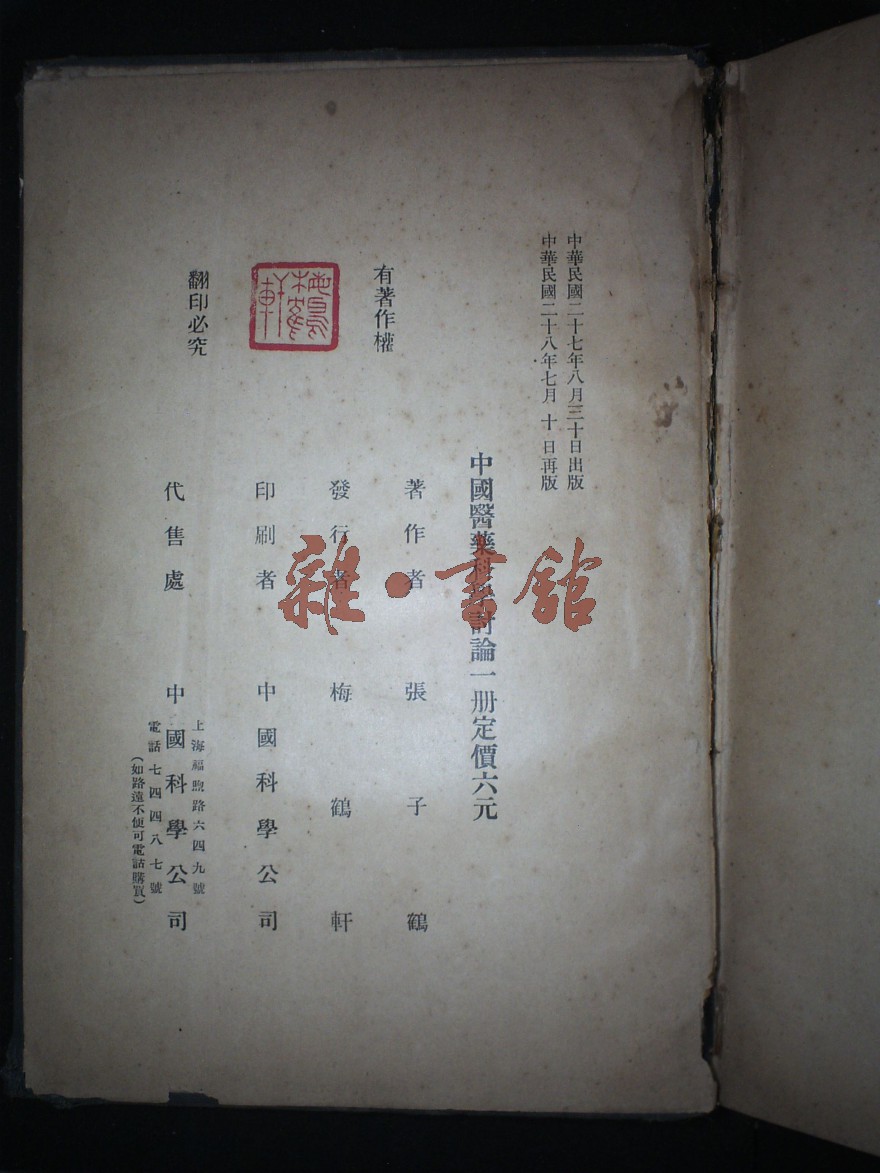 中華民國二十七年八月三十日出版
中華民國二十八年七月十日再版
中國醫藥科學討論一册定價六元
有著作權
翻印必究
著作者 張子鶴
發行者 梅鶴軒
印刷者 中國科學公司
代售處 中國科學公司
上海福煦路六四九號
電話七四四八七號
(如路遠不便可電話購買)
梅鶴軒
雜·書館